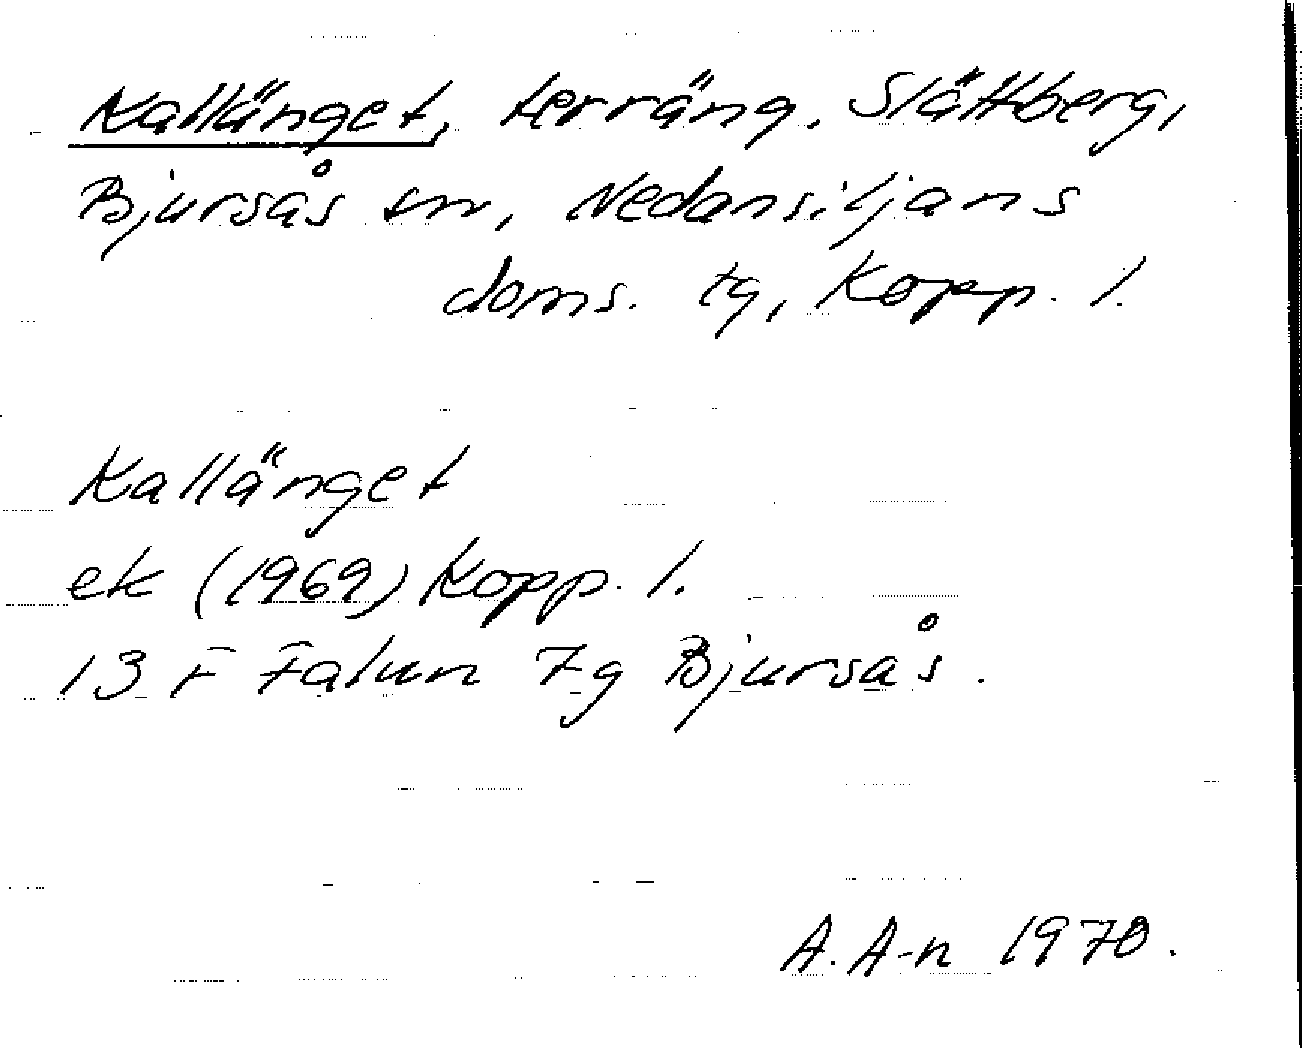 Kallänget, terräng. Slättberg,
Bjursås sn, Nedansiljans
doms. tg, Kopp. l.
Kallänget
ek (1969) Kopp. l.
13 F Falun 7g Bjursås.
A. A-n 1970.